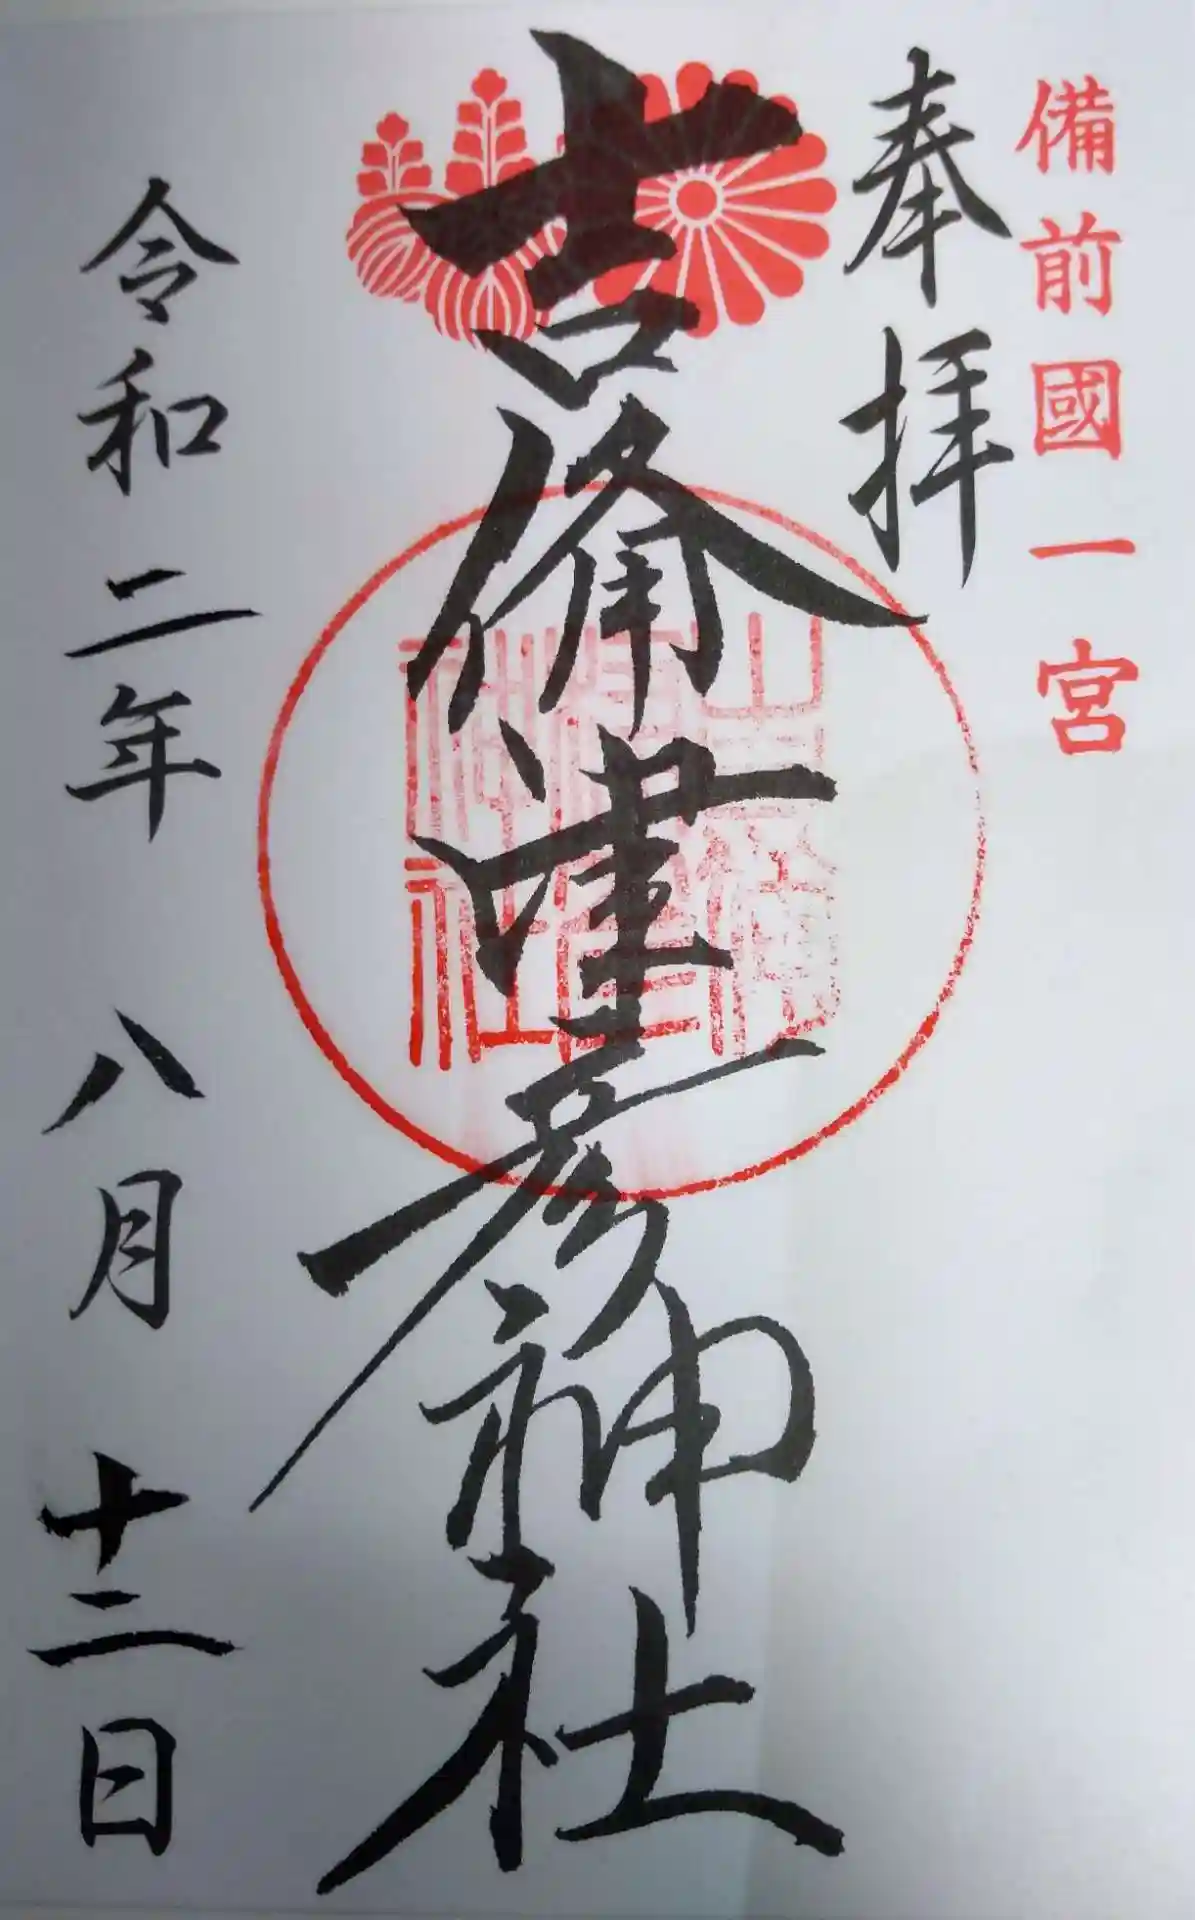 備前國一宮
奉拝
吉備津彦神社
令和二年 八月 十二日